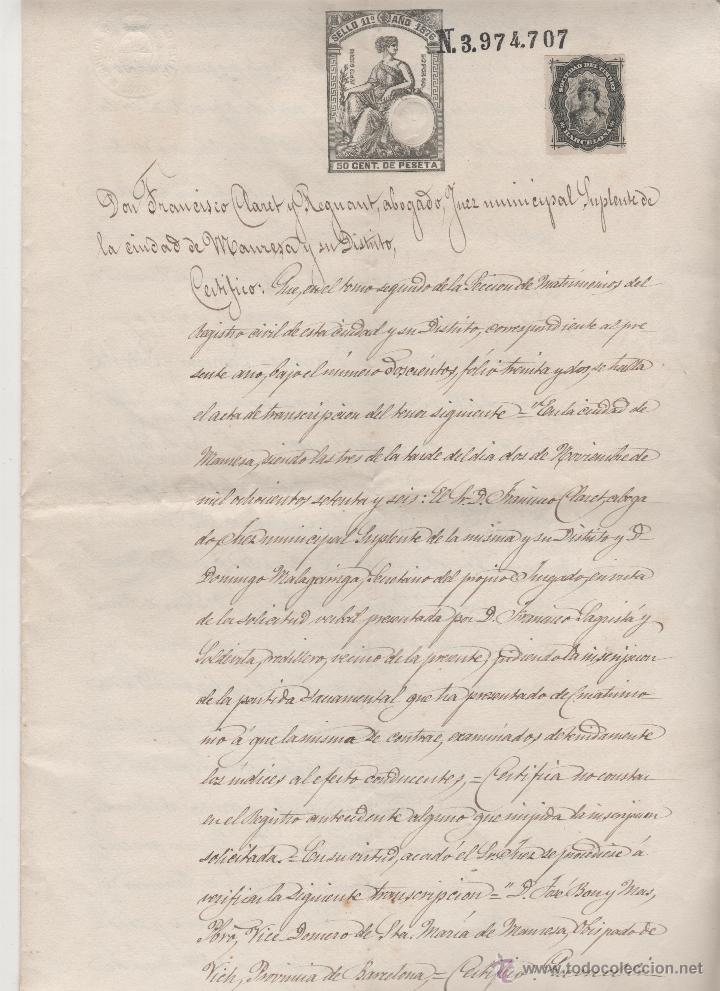 SELLO 11º AÑO 1876
N.3.974.707
50 CENT. DE PESETA
BARCELONA
Don Francisco Claret y Reguant, abogado, Juez municipal Suplente de
la ciudad de Manresa y su Distrito,
Certifico: Que, en el tomo segundo de la Seccion de Matrimonios del
Registro civil de esta ciudad y su Distrito, correspondiente al pre
sente año, bajo el número doscientos, folio treinta y dos, se halla
el acta de transcripcion del tenor siguiente = "En la ciudad de
Manresa, siendo las tres de la tarde del dia dos de Noviembre de
mil ochocientos setenta y seis: El Sr. D. Francisco Claret, aboga
do, Juez municipal Suplente de la misma y su Distrito y Dn
Domingo Malagarriga, Secretario del propio Juzgado, en vista
de la solicitud verbal presentada por D. Francisco Sagristá y
vecino de la presente, pidiendo la inscripcion
de la partida Sacramental que ha presentado de matrimo
nio á que la misma se contrae, examinados detenidamente
los índices al efecto conducentes, = Certifica no constar
en el Registro antecedente alguno que impida la inscripcion
solicitada. = En su virtud, acordó el Sr. Juez se procediese á
verificar la siguiente transcripcion = "D. José Bou y Mas,
Pbro, Vice-Domero de Sta. María de Manresa, Obispado de
Vich, Provincia de Barcelona, = Certifico:
todocoleccion.net